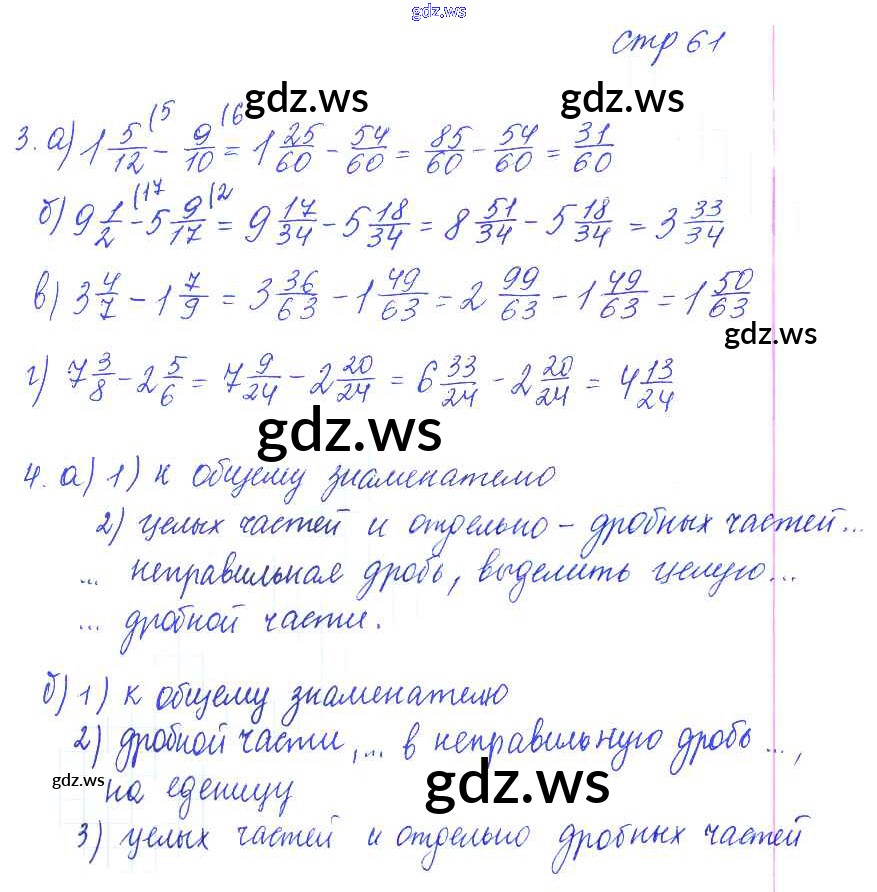 gdz.ws
стр 61
gdz.ws gdz.ws
3. а) 1 5/12 (5 - 9/10 (6 = 1 25/60 - 54/60 = 85/60 - 54/60 = 31/60
б) 9 1/2 (17 - 5 9/17 (2 = 9 17/34 - 5 18/34 = 8 51/34 - 5 18/34 = 3 33/34
в) 3 4/7 - 1 7/9 = 3 36/63 - 1 49/63 = 2 99/63 - 1 49/63 = 1 50/63
gdz.ws
г) 7 3/8 - 2 5/6 = 7 9/24 - 2 20/24 = 6 33/24 - 2 20/24 = 4 13/24
gdz.ws
4. а) 1) к общему знаменателю
2) целых частей и отдельно - дробных частей...
... неправильная дробь, выделить целую...
... дробной части.
б) 1) к общему знаменателю
2) дробной части, ... в неправильную дробь ...,
gdz.ws gdz.ws
на еденицу
3) целых частей и отдельно дробных частей